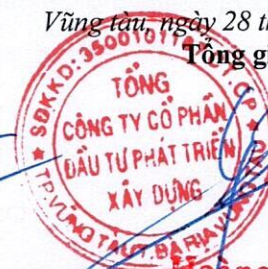 Vũng tàu, ngày 28 th
Tổng g
SĐKKD: 35001011
TỔNG
CÔNG TY CỔ PHẦN
ĐẦU TƯ PHÁT TRIỂN
XÂY DỰNG
TP.VŨNG TÀU-T.BÀ RỊA VŨNG TÀU